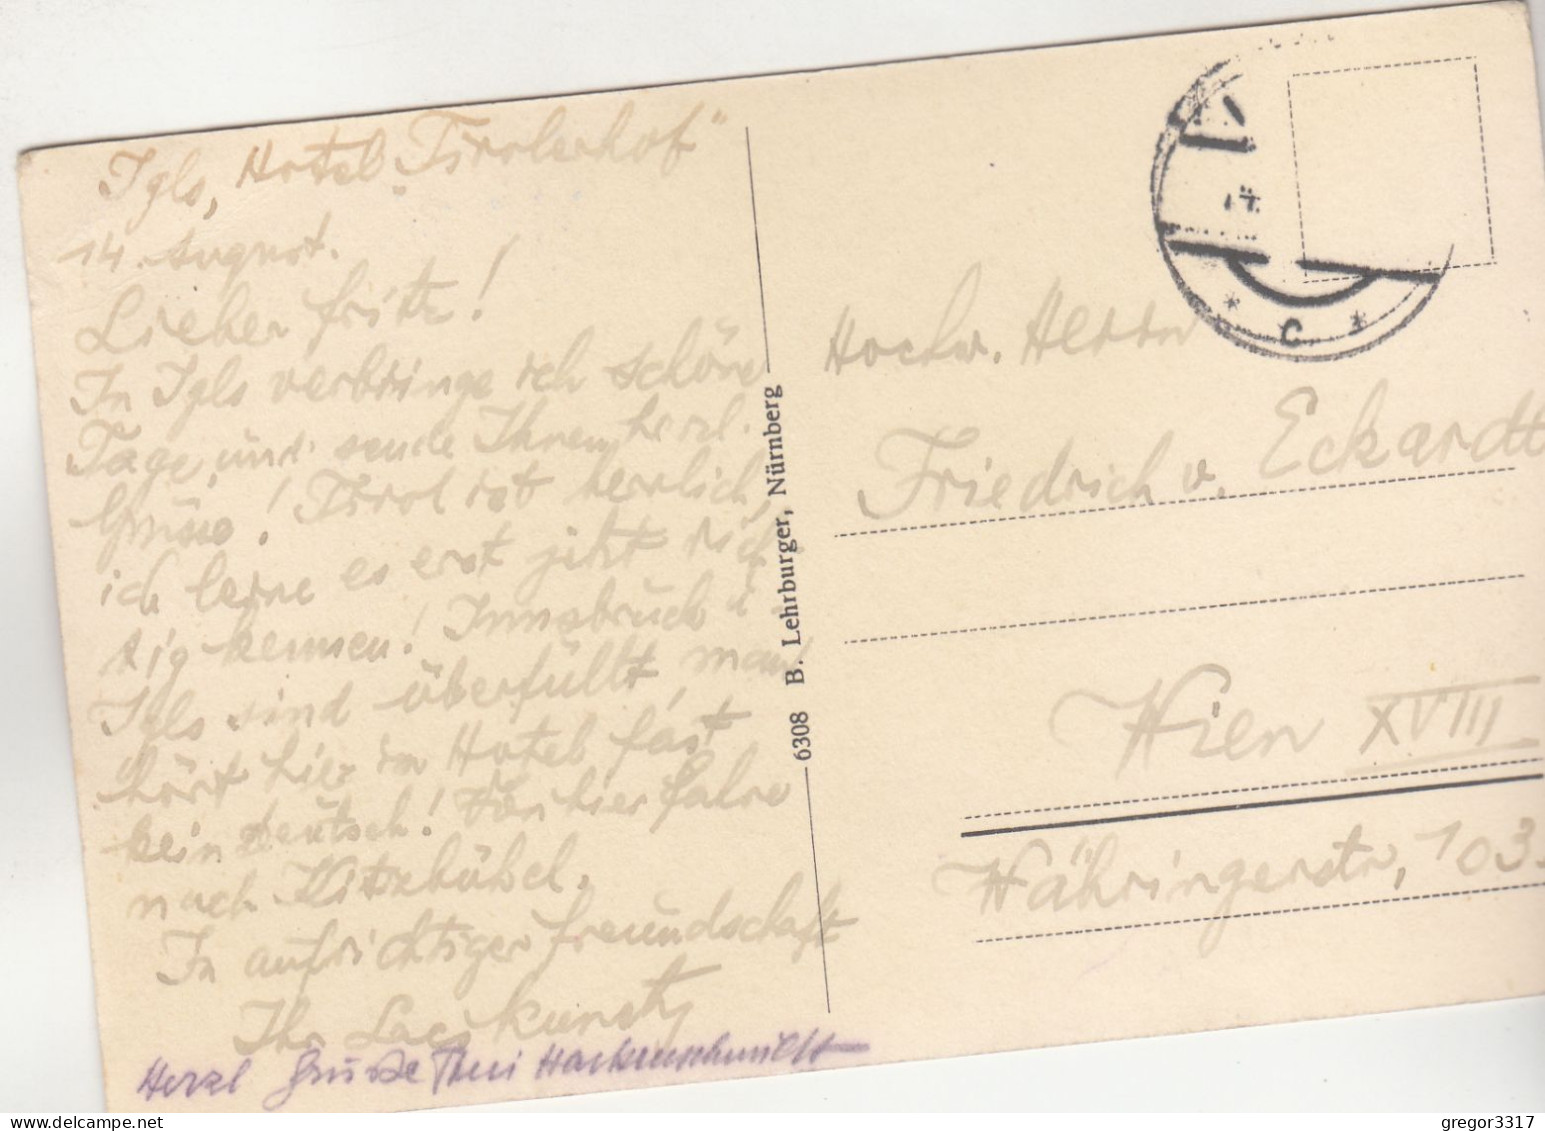 Igls, Hotel „Tirolerhof"
14. August.
Lieber Fritz!
In Igls verbringe ich schöne
Tage, und sende Ihnen herzl.
Grüße! Tirol ist herrlich,
ich lerne es erst jetzt rich
tig kennen! Innsbruck u.
Igls sind überfüllt, man
hört hier im Hotel fast
kein deutsch! Von hier fahre
nach Kitzbühel.
In aufrichtiger Freundschaft
Ihr
Herzl Grüsse Hackenschmidt
6308 B. Lehrburger, Nürnberg
* c *
Hochw. Herrn
Friedrich v. Eckardt
Wien XVIII
Währingerstr, 103.
gregor3317